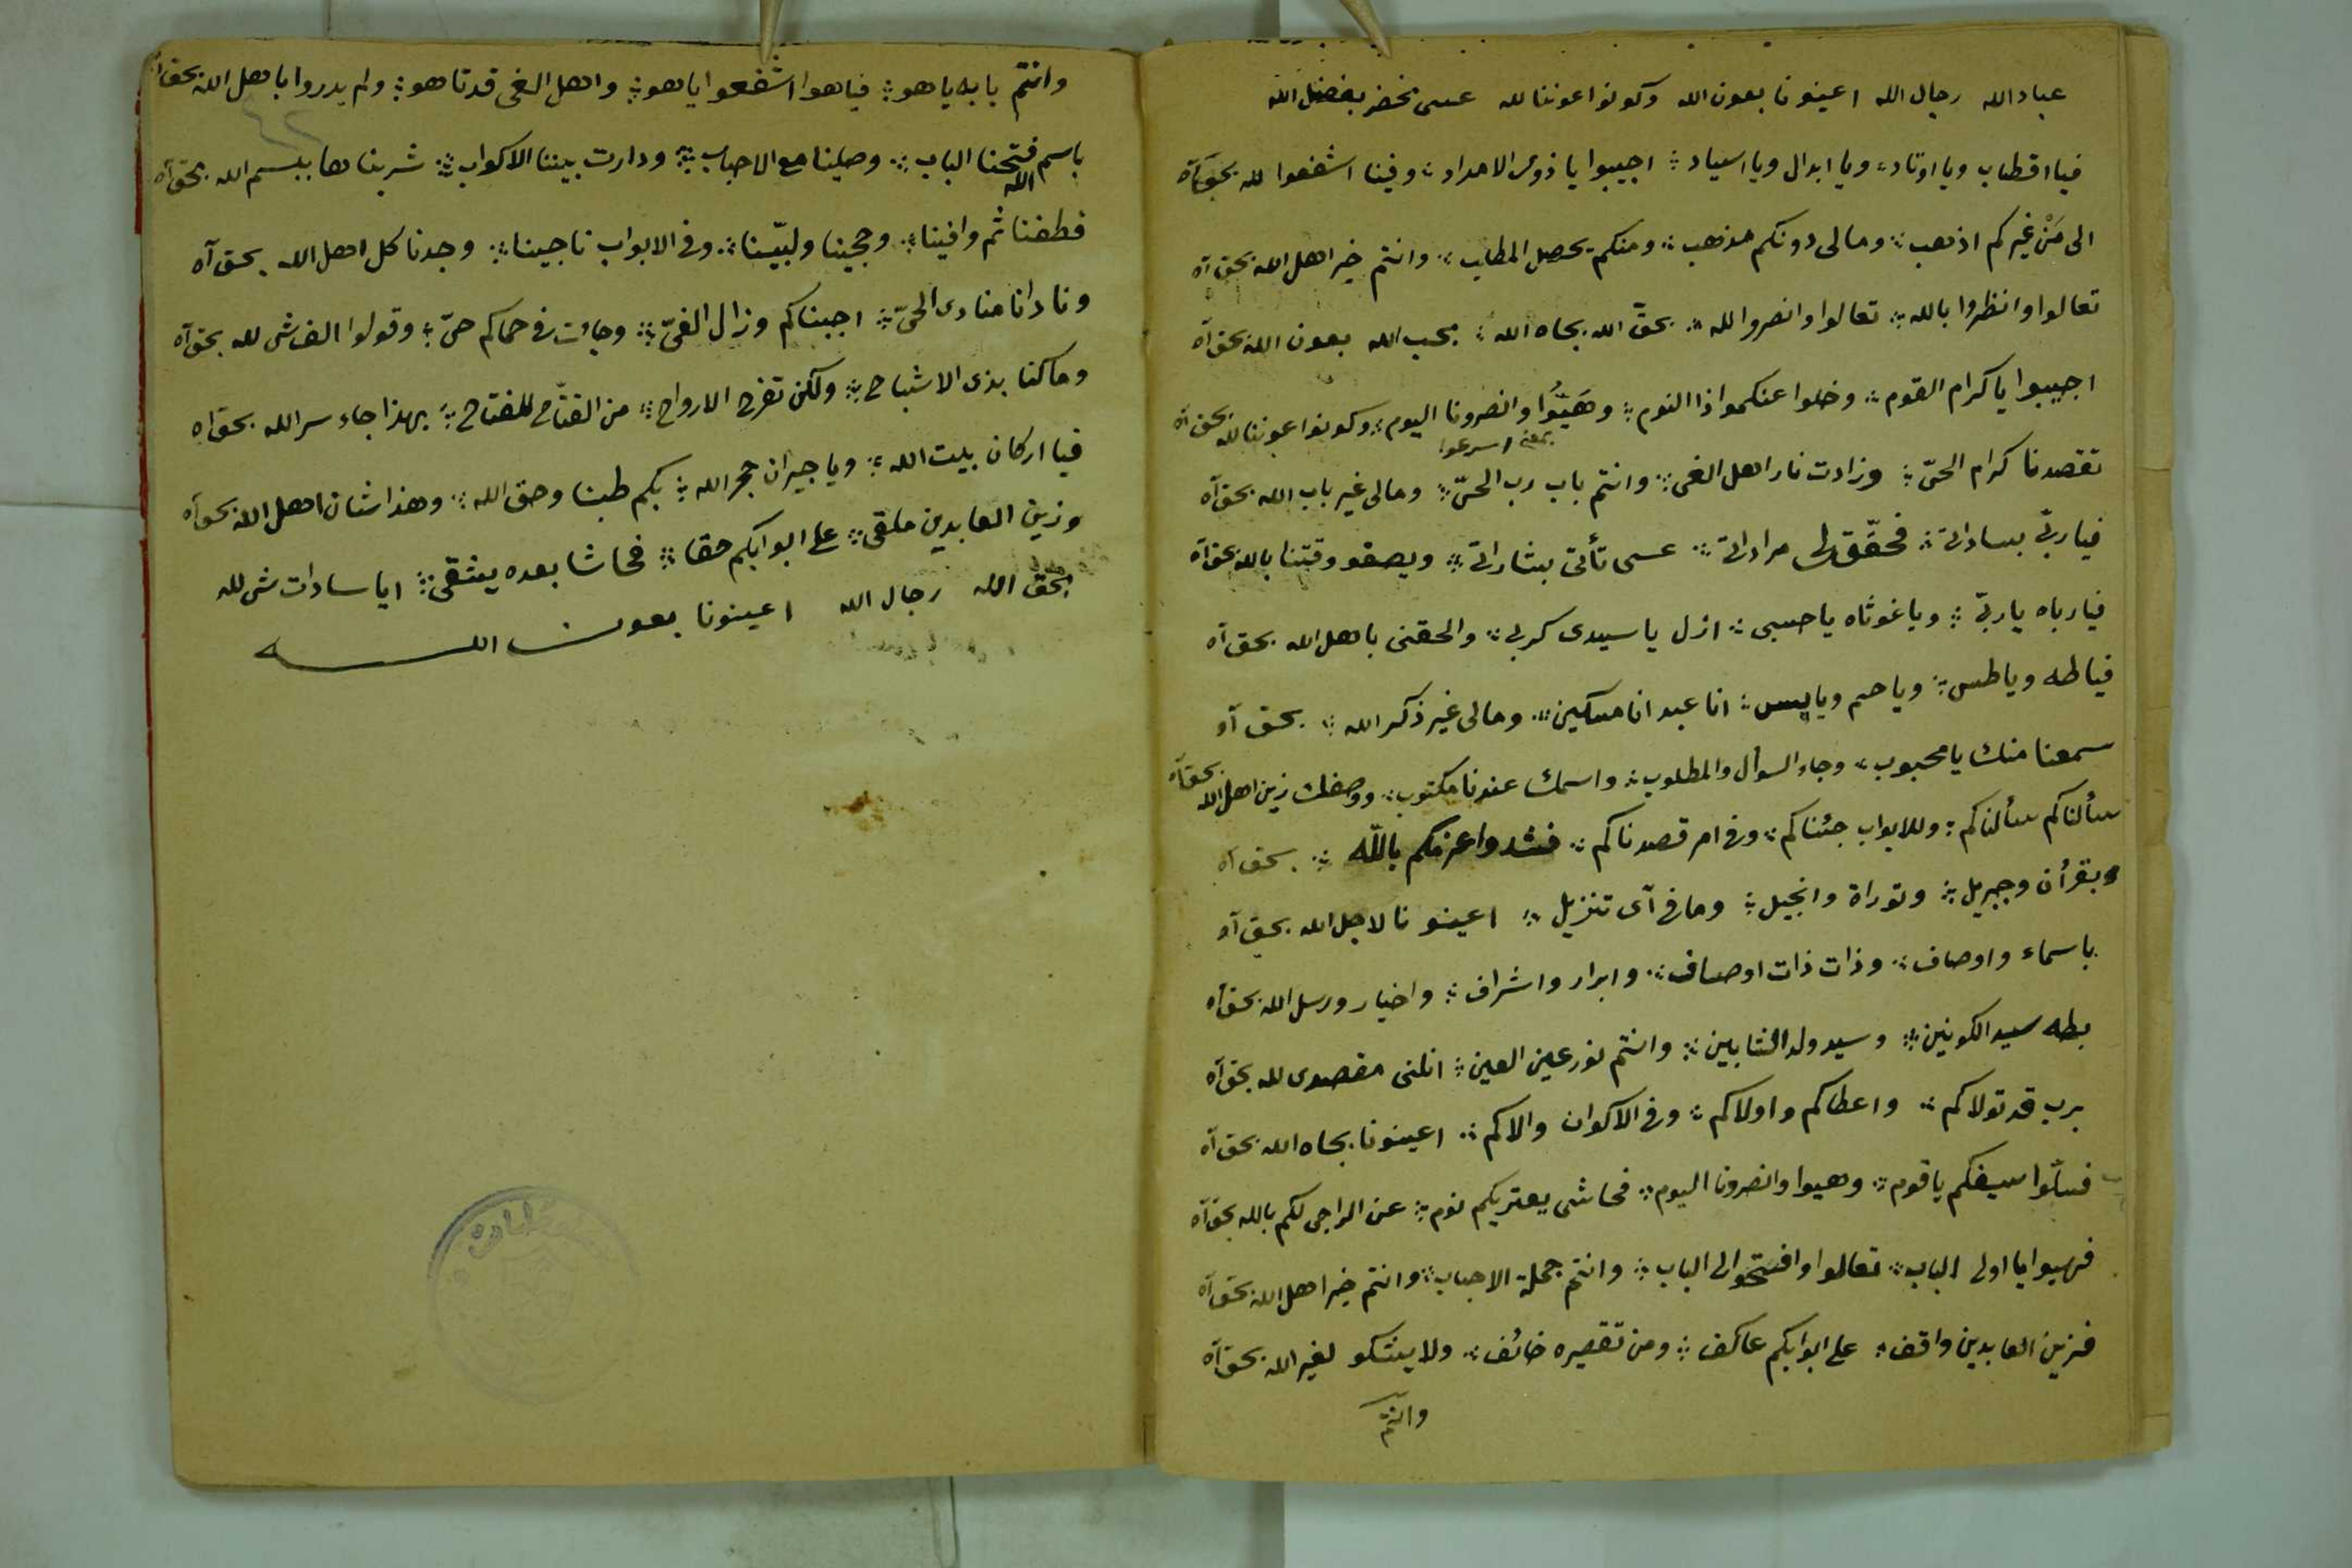 عباد الله رجال الله اعينونا بعون الله وكونوا عوننا لله عسى نحضر بفضل الله
فيا اقطاب ويا اوتاد ؞ ويا ابدال ويا اسياد ؞ اجيبوا يا ذوى الامداد ؞ وفينا اشفعوا لله بحق آه
الى مَنْ غيركم اذهب ؞ ومالى دونكم مذهب ؞ ومنكم يحصل المطلب ؞ وانتم خير اهل الله بحق آه
تعالوا وانظروا بالله ؞ تعالوا وانصروا لله ؞ بحقّ الله بجاه الله ؞ بحب الله بعون الله بحق آه
اجيبوا يا كرام القوم ؞ وخلوا عنكموا ذا النوم ؞ وهَيُّوا وانصرونا اليوم ؞ وكونوا عوننا لله بحق آه
بمعنى اسرعوا
تقصدنا كرام الحىّ ؞ وزادت نار اهل الغى ؞ وانتم باب رب الحىّ ؞ ومالى غير باب الله بحق آه
فيا ربّى بساداتى ؞ فحقّق لى مراداتى ؞ عسى تأتى بشاراتى ؞ ويصفو وقتنا بالله بحق آه
فيا رباه يا ربّى ؞ ويا غوثاه يا حسبى ؞ ازل يا سيدى كربى ؞ والحقنى باهل الله بحق آه
فيا طه ويا طس ؞ ويا حم ويا يس ؞ انا عبد انا مسكين ؞ ومالى غير ذكر الله ؞ بحق آه
سمعنا منك يا محبوب ؞ وجاء السوال والمطلوب ؞ واسمك عندنا مكتوب ؞ ووصفك زين اهل الله بحق آه
سألناكم سألناكم ؞ وللابواب جئناكم ؞ وفى امر قصدناكم ؞ فشدوا عزمكم بالله ؞ بحق آه
وبقرأن وجبريل ؞ وتوراة وانجيل ؞ وما فى آى تنزيل ؞ اعينونا لاجل الله بحق آه
باسماء واوصاف ؞ وذات ذات اوصاف ؞ وابرار واشراف ؞ واخيار ورسل الله بحق آه
بطه سيد الكونين ؞ وسيد ولد ؞ وانتم نور عين العين ؞ انلنى مقصدى لله بحق آه
برب قد تولاكم ؞ واعطاكم واولاكم ؞ وفى الاكوان والاكم ؞ اعينونا بجاه الله بحق آه
فسلّوا سيفكم يا قوم ؞ وهيوا وانصرونا اليوم ؞ فحاشى يعتريكم نوم ؞ عن الراجى لكم بالله بحق آه
فهيوا يا اولى الباب ؞ تعالوا وافتحوا لى الباب ؞ وانتم جملة الاحباب ؞ وانتم خير اهل الله بحق آه
فزين العابدين واقف ؞ على ابوابكم عاكف ؞ ومن تقصيره خائف ؞ ولا يشكو لغير الله بحق آه
وانتم
وانتم بابه ياهو ؞ فياهوا اشفعوا ياهو ؞ واهل الغى قد تاهو ؞ ولم يدروا باهل الله بحق آه
٤٢
باسم الله فتحنا الباب ؞ وصلينا مع الاحباب ؞ ودارت بيننا الاكواب ؞ شربناها ببسم الله بحق آه
فطفنا ثم وافينا ؞ وحجينا ولبّينا ؞ وفى الابواب ناجينا ؞ وجدنا كل اهل الله بحق آه
ونادانا منادى الحىّ ؞ اجبناكم وزال الغىّ ؞ وجائت فى حماكم حىّ ؞ وقولوا الف شى لله بحق آه
وما كنا بذى الاشباح ؞ ولكن تفرح الارواح ؞ من الفتّاح للمفتاح ؞ بهذا جاء سر الله بحق آه
فيا اركان بيت الله ؞ ويا جيران حجر الله ؞ بكم طبنا وحق الله ؞ وهذا شان اهل الله بحق آه
وزين العابدين ملقى ؞ على ابوابكم حقا ؞ فحاشا بعده يشقى ؞ ايا سادات شى لله
بحق الله رجال الله اعينونا بعون الله